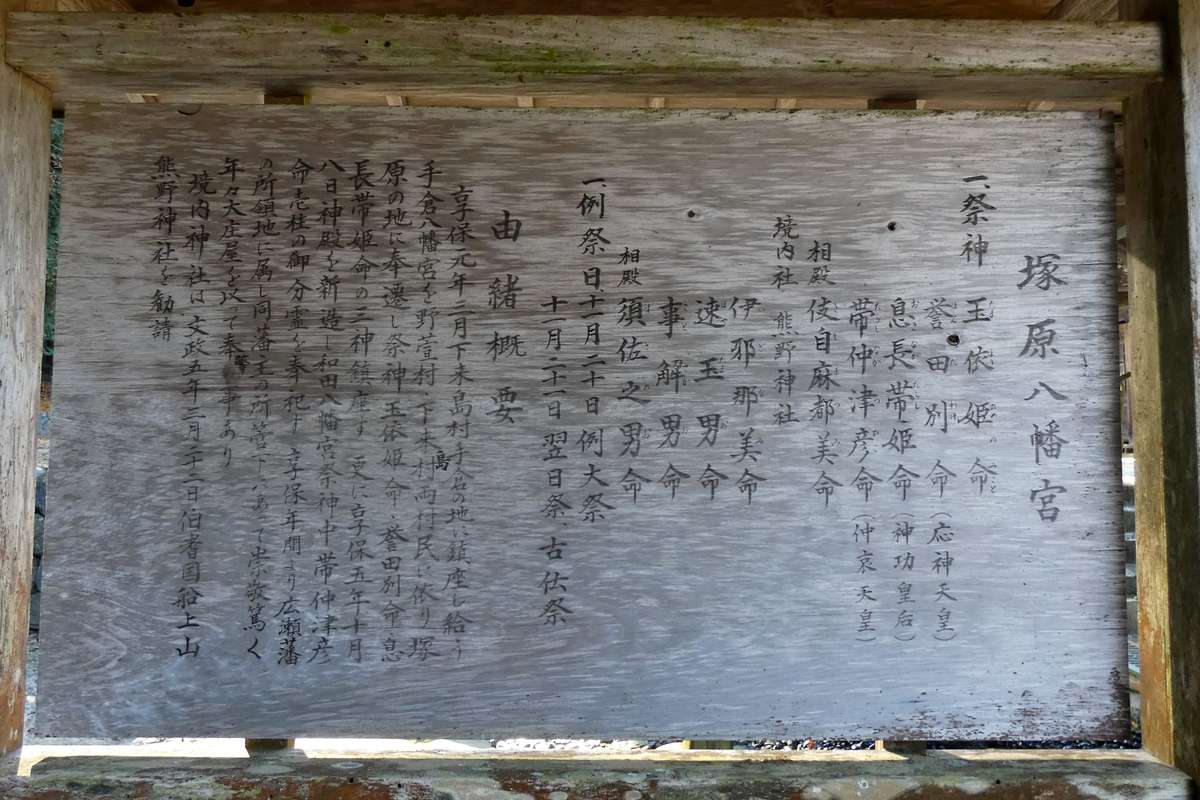 塚原八幡宮
一、祭神 玉依姫命
誉田別命（応神天皇）
息長帯姫命（神功皇后）
帯仲津彦命（仲哀天皇）
相殿 伎自麻都美命
境内社 熊野神社
伊邪那美命
速玉男命
事解男命
相殿 須佐之男命
一、例祭日、十一月二十日 例大祭
十一月二十一日 翌日祭、古伝祭
由緒概要
享保元年二月下来島村手倉の地に鎮座し給う
手倉八幡宮を野萱村、下来島村両村民に依り塚
原の地に奉遷し祭神玉依姫命、誉田別命、息
長帯姫命の三神鎮座す 更に享保五年十月
八日神殿を新造し和田八幡宮祭神中帯仲津彦
命壱柱の御分霊を奉祀す 享保年間より広瀬藩
の所領地に属し同藩主の所管下にあって崇敬篤く
年々大庄屋を以って奉幣の事あり
境内神社は文政五年三月二十二日伯耆国船上山
熊野神社を勧請